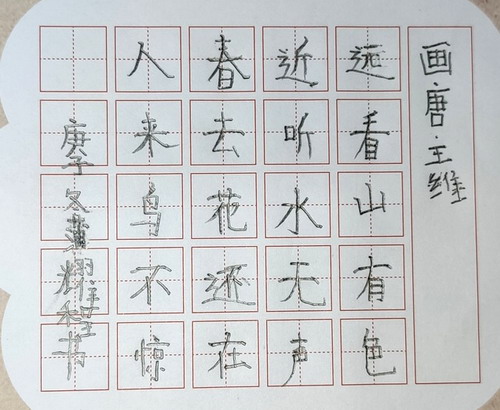 画·唐·王维
远看山有色
近听水无声
春去花还在
人来鸟不惊
庚子冬 耀程书